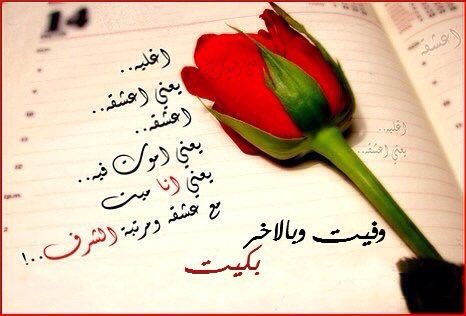 14
اغليه..
يعني اعشقه..
اعشقه..
يعني اموت فيه..
يعني انا ميت
مع عشقه ومرتبة الشرف..!
وفيت وبالاخر
بكيت
اعشقه
اغليه..
يعني اعشقه..